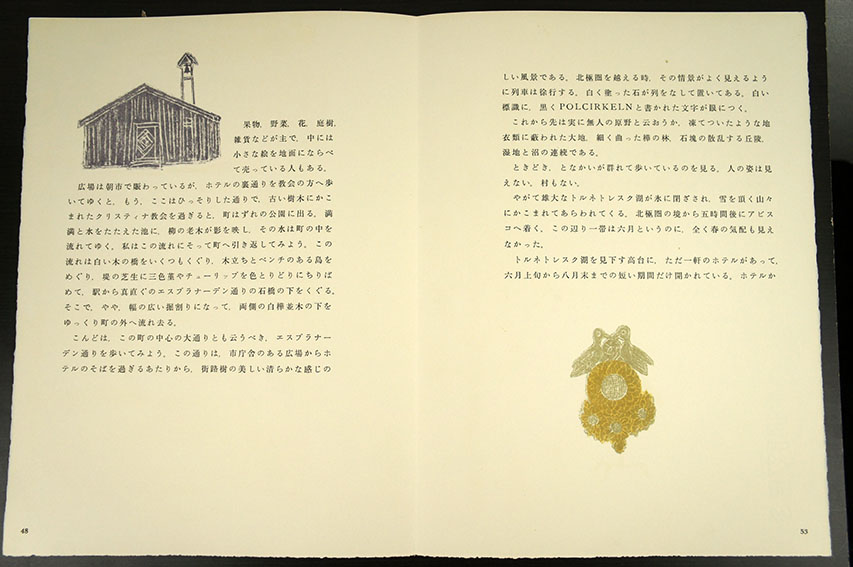 果物，野菜，花，庭樹，
雑貨などが主で，中には
小さな絵を地面にならべ
て売っている人もある。
広場は朝市で賑わっているが，ホテルの裏通りを教会の方へ歩
いてゆくと，もう，ここはひっそりした通りで，古い樹木にかこ
まれたクリスティナ教会を過ぎると，町はずれの公園に出る。満
満と水をたたえた池に，柳の老木が影を映し，その水は町の中を
流れてゆく。私はこの流れにそって町へ引き返してみよう。この
流れは白い木の橋をいくつもくぐり，木立ちとベンチのある島を
めぐり，堤の芝生に三色菫やチューリップを色とりどりにちりば
めて，駅から真直ぐのエスプラナーデン通りの石橋の下をくぐる。
そこで，やや，幅の広い掘割りになって，両側の白樺並木の下を
ゆっくり町の外へ流れ去る。
こんどは，この町の中心の大通りとも云うべき，エスプラナー
デン通りを歩いてみよう。この通りは，市庁舎のある広場からホ
テルのそばを過ぎるあたりから，街路樹の美しい清らかな感じの
48
しい風景である。北極圏を越える時，その情景がよく見えるよう
に列車は徐行する。白く塗った石が列をなして置いてある。白い
標識に，黒くPOLCIRKELNと書かれた文字が眼につく。
これから先は実に無人の原野と云おうか，凍てついたような地
衣類に蔽われた大地，細く曲った樺の林，石塊の散乱する丘陵，
湿地と沼の連続である。
ときどき，となかいが群れて歩いているのを見る。人の姿は見
えない。村もない。
やがて雄大なトルネトレスク湖が氷に閉ざされ，雪を頂く山々
にかこまれてあらわれてくる。北極圏の境から五時間後にアビス
コへ着く。この辺り一帯は六月というのに，全く春の気配も見え
なかった。
トルネトレスク湖を見下す高台に，ただ一軒のホテルがあって，
六月上旬から八月末までの短い期間だけ開かれている。ホテルか
53